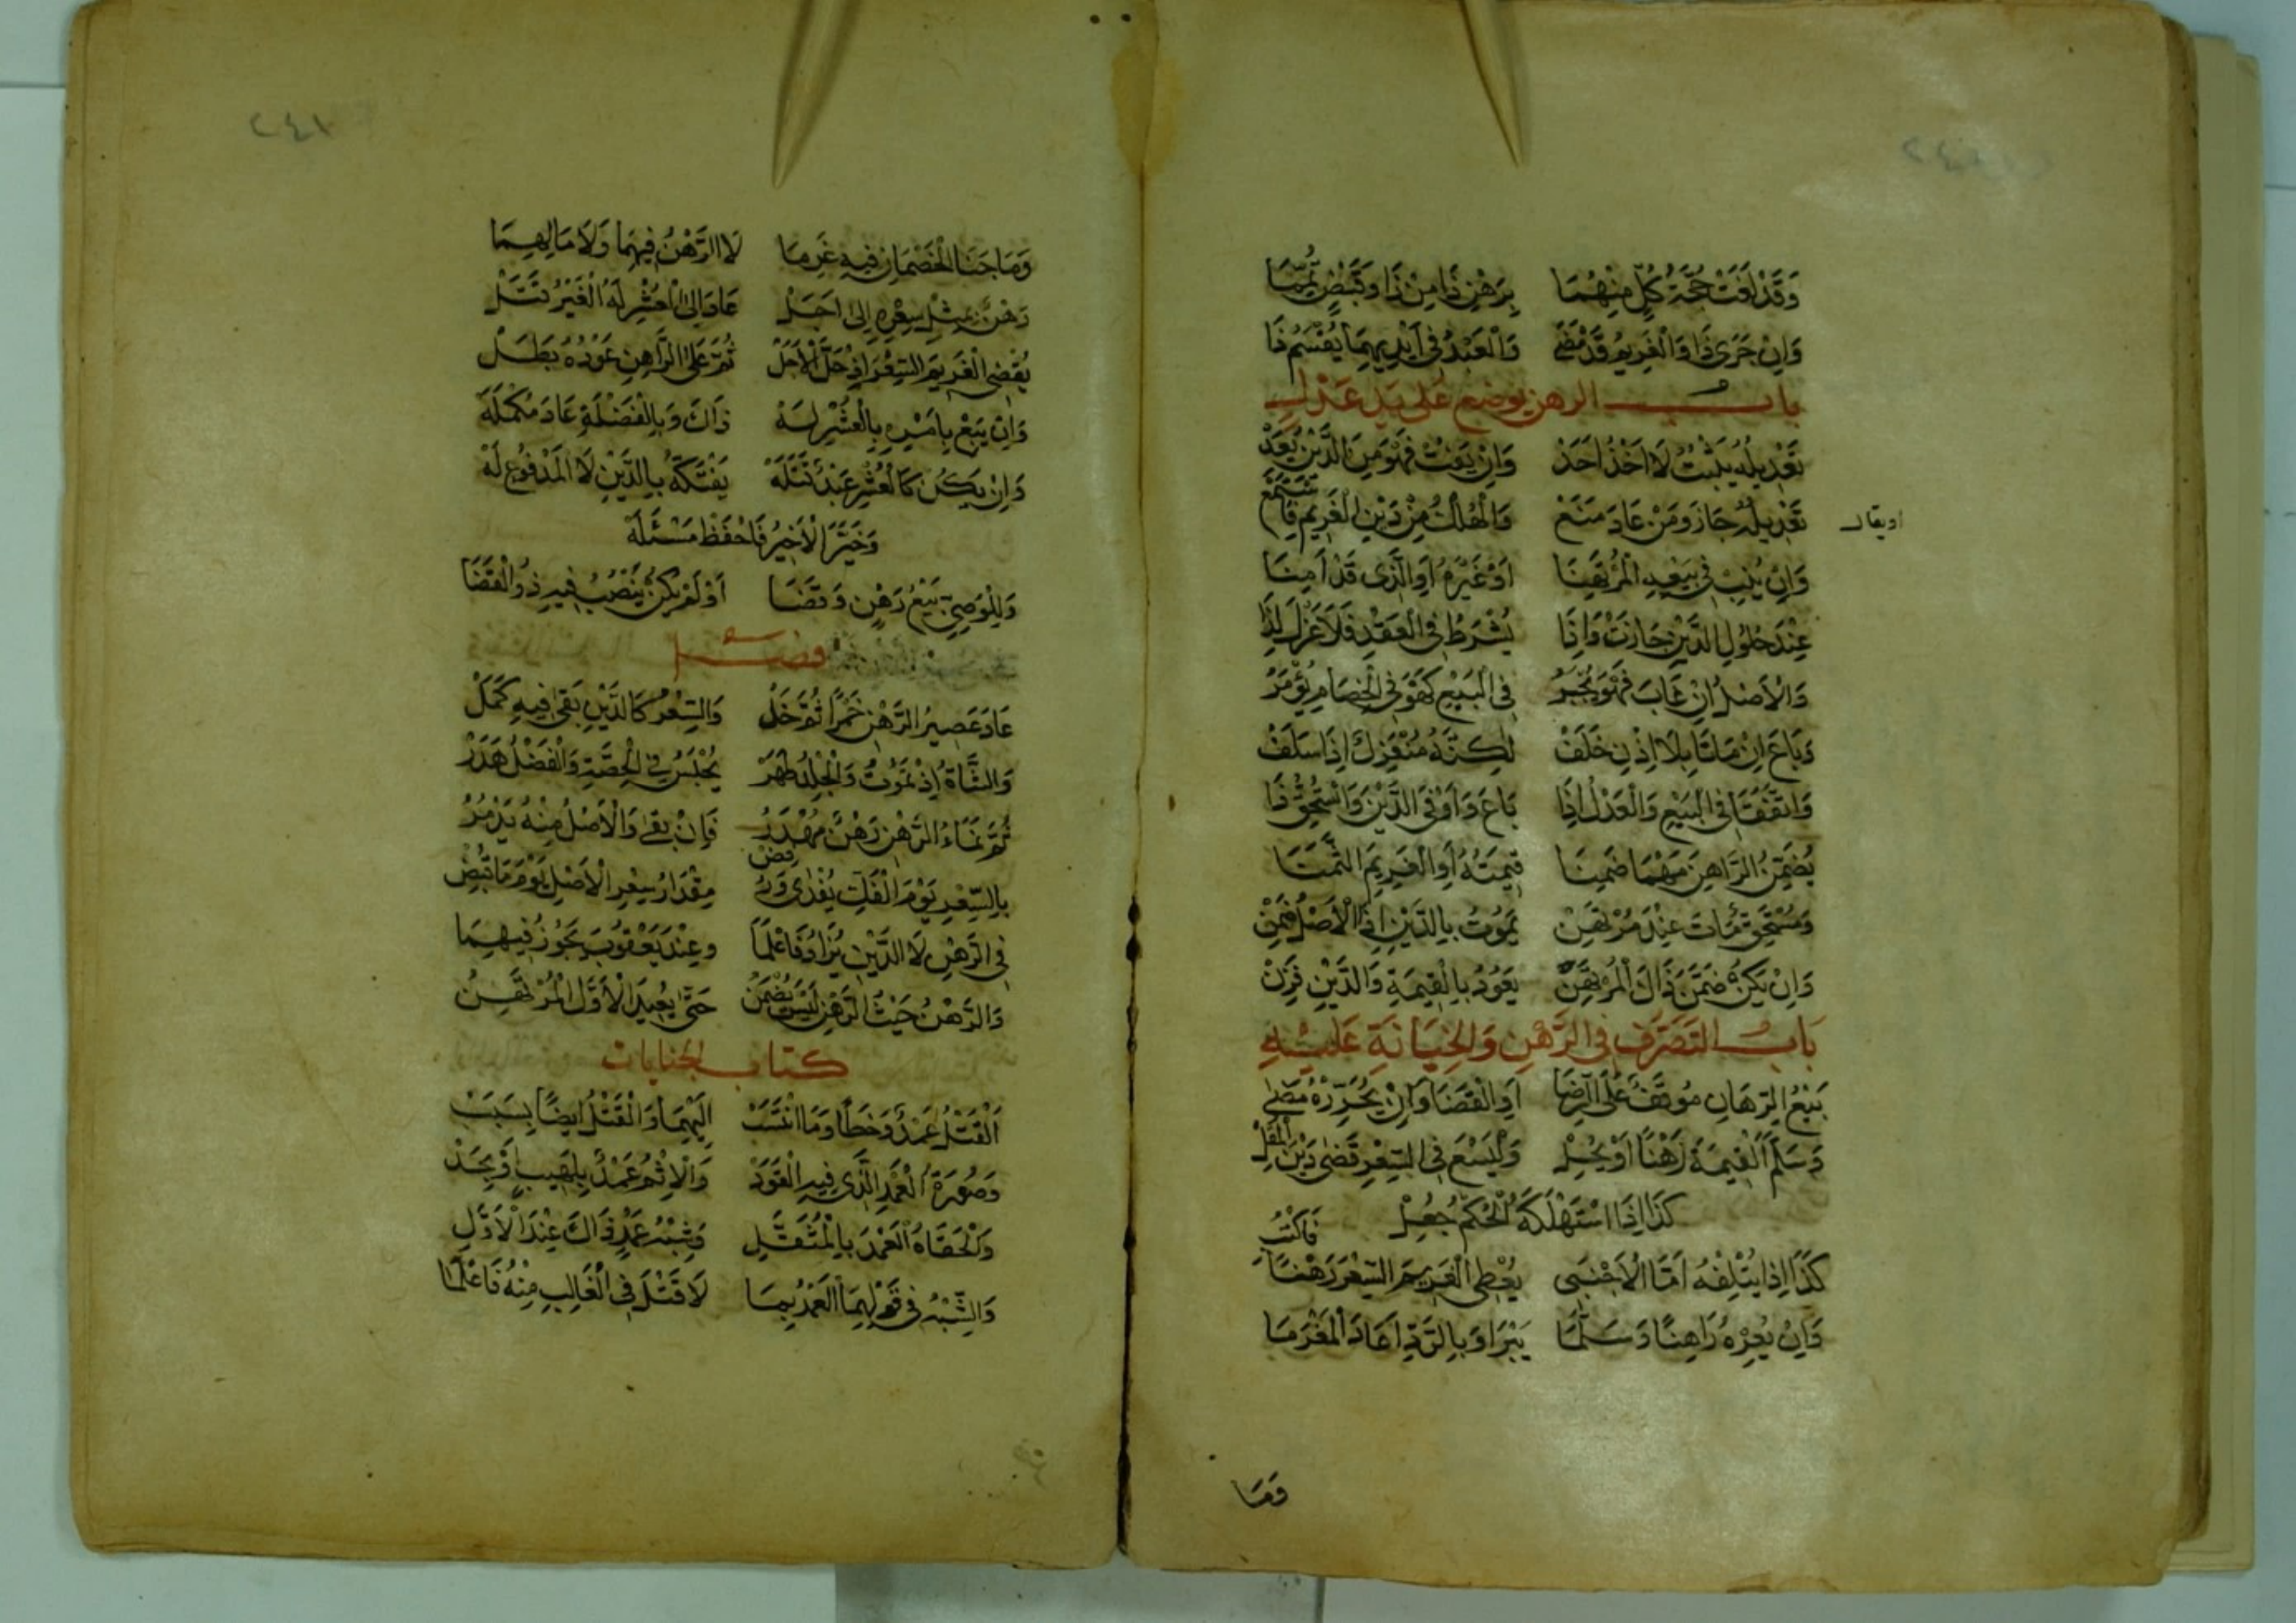 وَقَدْ لَغَتْ حُجَّةُ كُلٍّ مِنْهُمَا بِرَهْنِ ذَا مِنْ ذَا وَقَبْضٍ تُمِّمَا
وَاِنْ جَرَى ذَا وَالْغَرِيمُ قَدْ مَضَى وَالْعَبْدُ فِى اَيْدِيهِمَا يُقْسَمُ ذَا
باب الرهن يوضع على يد عدل
تَعْدِيلُهُ يَثْبُتُ لَا اَخْذُ اَحَدْ وَاِنْ يَفُتْ فَهْوَ مِنَ الدَّيْنِ يُعَدْ
اويقال
تَعْدِيلُهُ جَازَ وَمَنْ عَادَ مَنَعْ وَالْهُلْكُ مِنْ دَيْنِ الْغَرِيمِ فَاسْتَمَعْ
وَاِنْ يُنِبْ فِى بَيْعِهِ الْمُرْتَهِنَا اَوْ غَيْرَهُ اَوِ الَّذِى قَدْ اَمِنَا
عِنْدَ حُلُولِ الدَّيْنِ جَازَتْ وَاِذَا يُشْرَطُ فِى الْعَقْدِ فَلَا عَزْلَ لِذَا
وَالْاَصْلُ اِنْ غَابَ فَهْوَ يُجْبَرُ فِى الْبَيْعِ كَهْوَ فِى الْخِصَامِ يُؤْمَرُ
وَبَاعَ اِنْ مَاتَا بِلَا اِذْنِ خَلَفْ لٰكِنَّهُ مُنْعَزِلٌ اِذَا سَلَفْ
وَاتَّفَقَا فِى الْبَيْعِ وَالْعَدْلُ اِذَا بَاعَ وَاَوْفَى الدَّيْنَ وَاسْتُحِقَّ ذَا
يُضَمِّنُ الرَّاهِنَ مَهْمَا ضَمِنَا قِيمَتَهُ اَوِ الْغَرِيمَ الثَّمَنَا
وَمُسْتَحَقٌّ مَاتَ عِنْدَ مُرْتَهِنْ يَمُوتُ بِالدَّيْنِ اِذَا الْاَصْلُ ضَمِنْ
وَاِنْ يَكُنْ ضَمَّنَ ذَاكَ الْمُرْتَهِنْ يَعُودُ بِالْقِيمَةِ وَالدَّيْنِ فَزِنْ
بَابُ التَّصَرُّفِ فِى الرَّهْنِ وَالْجِنَايَةِ عَلَيْهِ
بَيْعُ الرِّهَانِ مُوقَفٌ عَلَى الرِّضَا اَوِ الْقَضَا وَاِنْ يُحَرِّرْهُ مَضَى
وَسَلَّمَ الْقِيمَةَ رَهْنًا اَوْ يُحِلْ وَلْيَسْعَ فِى السِّعْرِ قَضَى دَيْنَ الْمُقِلْ
كَذَا اِذَا اسْتَهْلَكَهُ الْحُكْمُ جُعِلْ
كَذَا اِذَا يُتْلِفُهُ اَمَّا الْاَجْنَبِى يُعْطِى الْغَرِيمَ السِّعْرَ رَهْنًا فَاكْتُبِ
وَاِنْ يُعِرْهُ رَاهِنًا وَسَلَّمَا يَبْرَا وَبِالرَّدِّ اَعَادَ الْمَغْرَمَا
وَمَا
٢٤١
وَمَا جَنَا الْخَصْمَانِ فِيهِ غَرِمَا لَا الرَّهْنُ فِيهِمَا وَلَا مَالِهِمَا
رَهْنٌ بِمِثْلِ سِعْرِهِ اِلَى اَجَلْ عَادَ اِلَى الْعُشْرِ لَهُ الْغَيْرُ قَتَلْ
يُقْضَى الْغَرِيمَ السِّعْرَ اِذْ حَلَّ الْاَجَلْ ثُمَّ عَلَى الرَّاهِنِ عَوْدُهُ بَطَلْ
وَاِنْ يَبِعْ بِاَمْرِهِ بِالْعُشْرِ لَهْ ذَاكَ وَبِالْفَضْلَةِ عَادَ مُكْمَلَهْ
وَاِنْ يَكُنْ كَالْعُشْرِ عَبْدٌ قَتَلَهْ يَفْتَكُّهُ بِالدَّيْنِ لَا الْمَدْفُوعِ لَهْ
وَخَيَّرَ الْاَخِيرُ فَاحْفَظْ مَسْئَلَهْ
وَلِلْوَصِىِّ بَيْعُ رَهْنٍ وَقَضَا اَوْ لَمْ يَكُنْ يَنْصُبُ فِيهِ ذُو الْقَضَا
فصل
عَادَ عَصِيرُ الرَّهْنِ خَمْرًا ثُمَّ خَلْ وَالسِّعْرُ كَالدَّيْنِ بَقَى فِيهِ كَمَلْ
وَالشَّاةُ اِذْ تَمُوتُ وَالْجِلْدُ طَهَرْ يُحْبَسُ فِى الْحِصَّةِ وَالْفَضْلُ هَدَرْ
ثُمَّ نَمَاءُ الرَّهْنِ رَهْنٌ مُهْدَرُ فَاِنْ بَقَى وَالْاَصْلُ مِنْهُ يَدْمُرُ
بِالسِّعْرِ يَوْمَ الْفَكِّ يُفْدَى وَرُفِضْ مِقْدَارُ سِعْرِ الْاَصْلِ يَوْمَ مَا قُبِضْ
فِى الرَّهْنِ لَا الدَّيْنِ يُزَادُ فَاعْلَمَا وَعِنْدَ يَعْقُوبَ يَجُوزُ فِيهِمَا
وَالرَّهْنُ حَيْثُ الرَّهْنُ لَيْسَ يُضْمَنُ حَتَّى يُعِيدَ الْاَوَّلَ الْمُرْتَهِنُ
كتاب الجنايات
اَلْقَتْلُ عَمْدٌ وَخَطًا وَمَا انْتَسَبْ اِلَيْهِمَا وَالْقَتْلُ اَيْضًا بِسَبَبْ
وَصُورَةُ الْعَمْدِ الَّذِى فِيهِ الْقَوَدْ وَالْاِثْمُ عَمْدٌ بِلَهِيبٍ اَوْ بِحَدْ
وَالْحَقَاهُ الْعَمْدَ بِالْمُثَقَّلِ وَشِبْهُ عَمْدٍ ذَاكَ عِنْدَ الْاَوَّلِ
وَالشِّبْهُ فِى قَوْلِهِمَا الْعَمْدُ بِمَا لَا قَتْلَ فِى الْغَالِبِ مِنْهُ فَاعْلَمَا